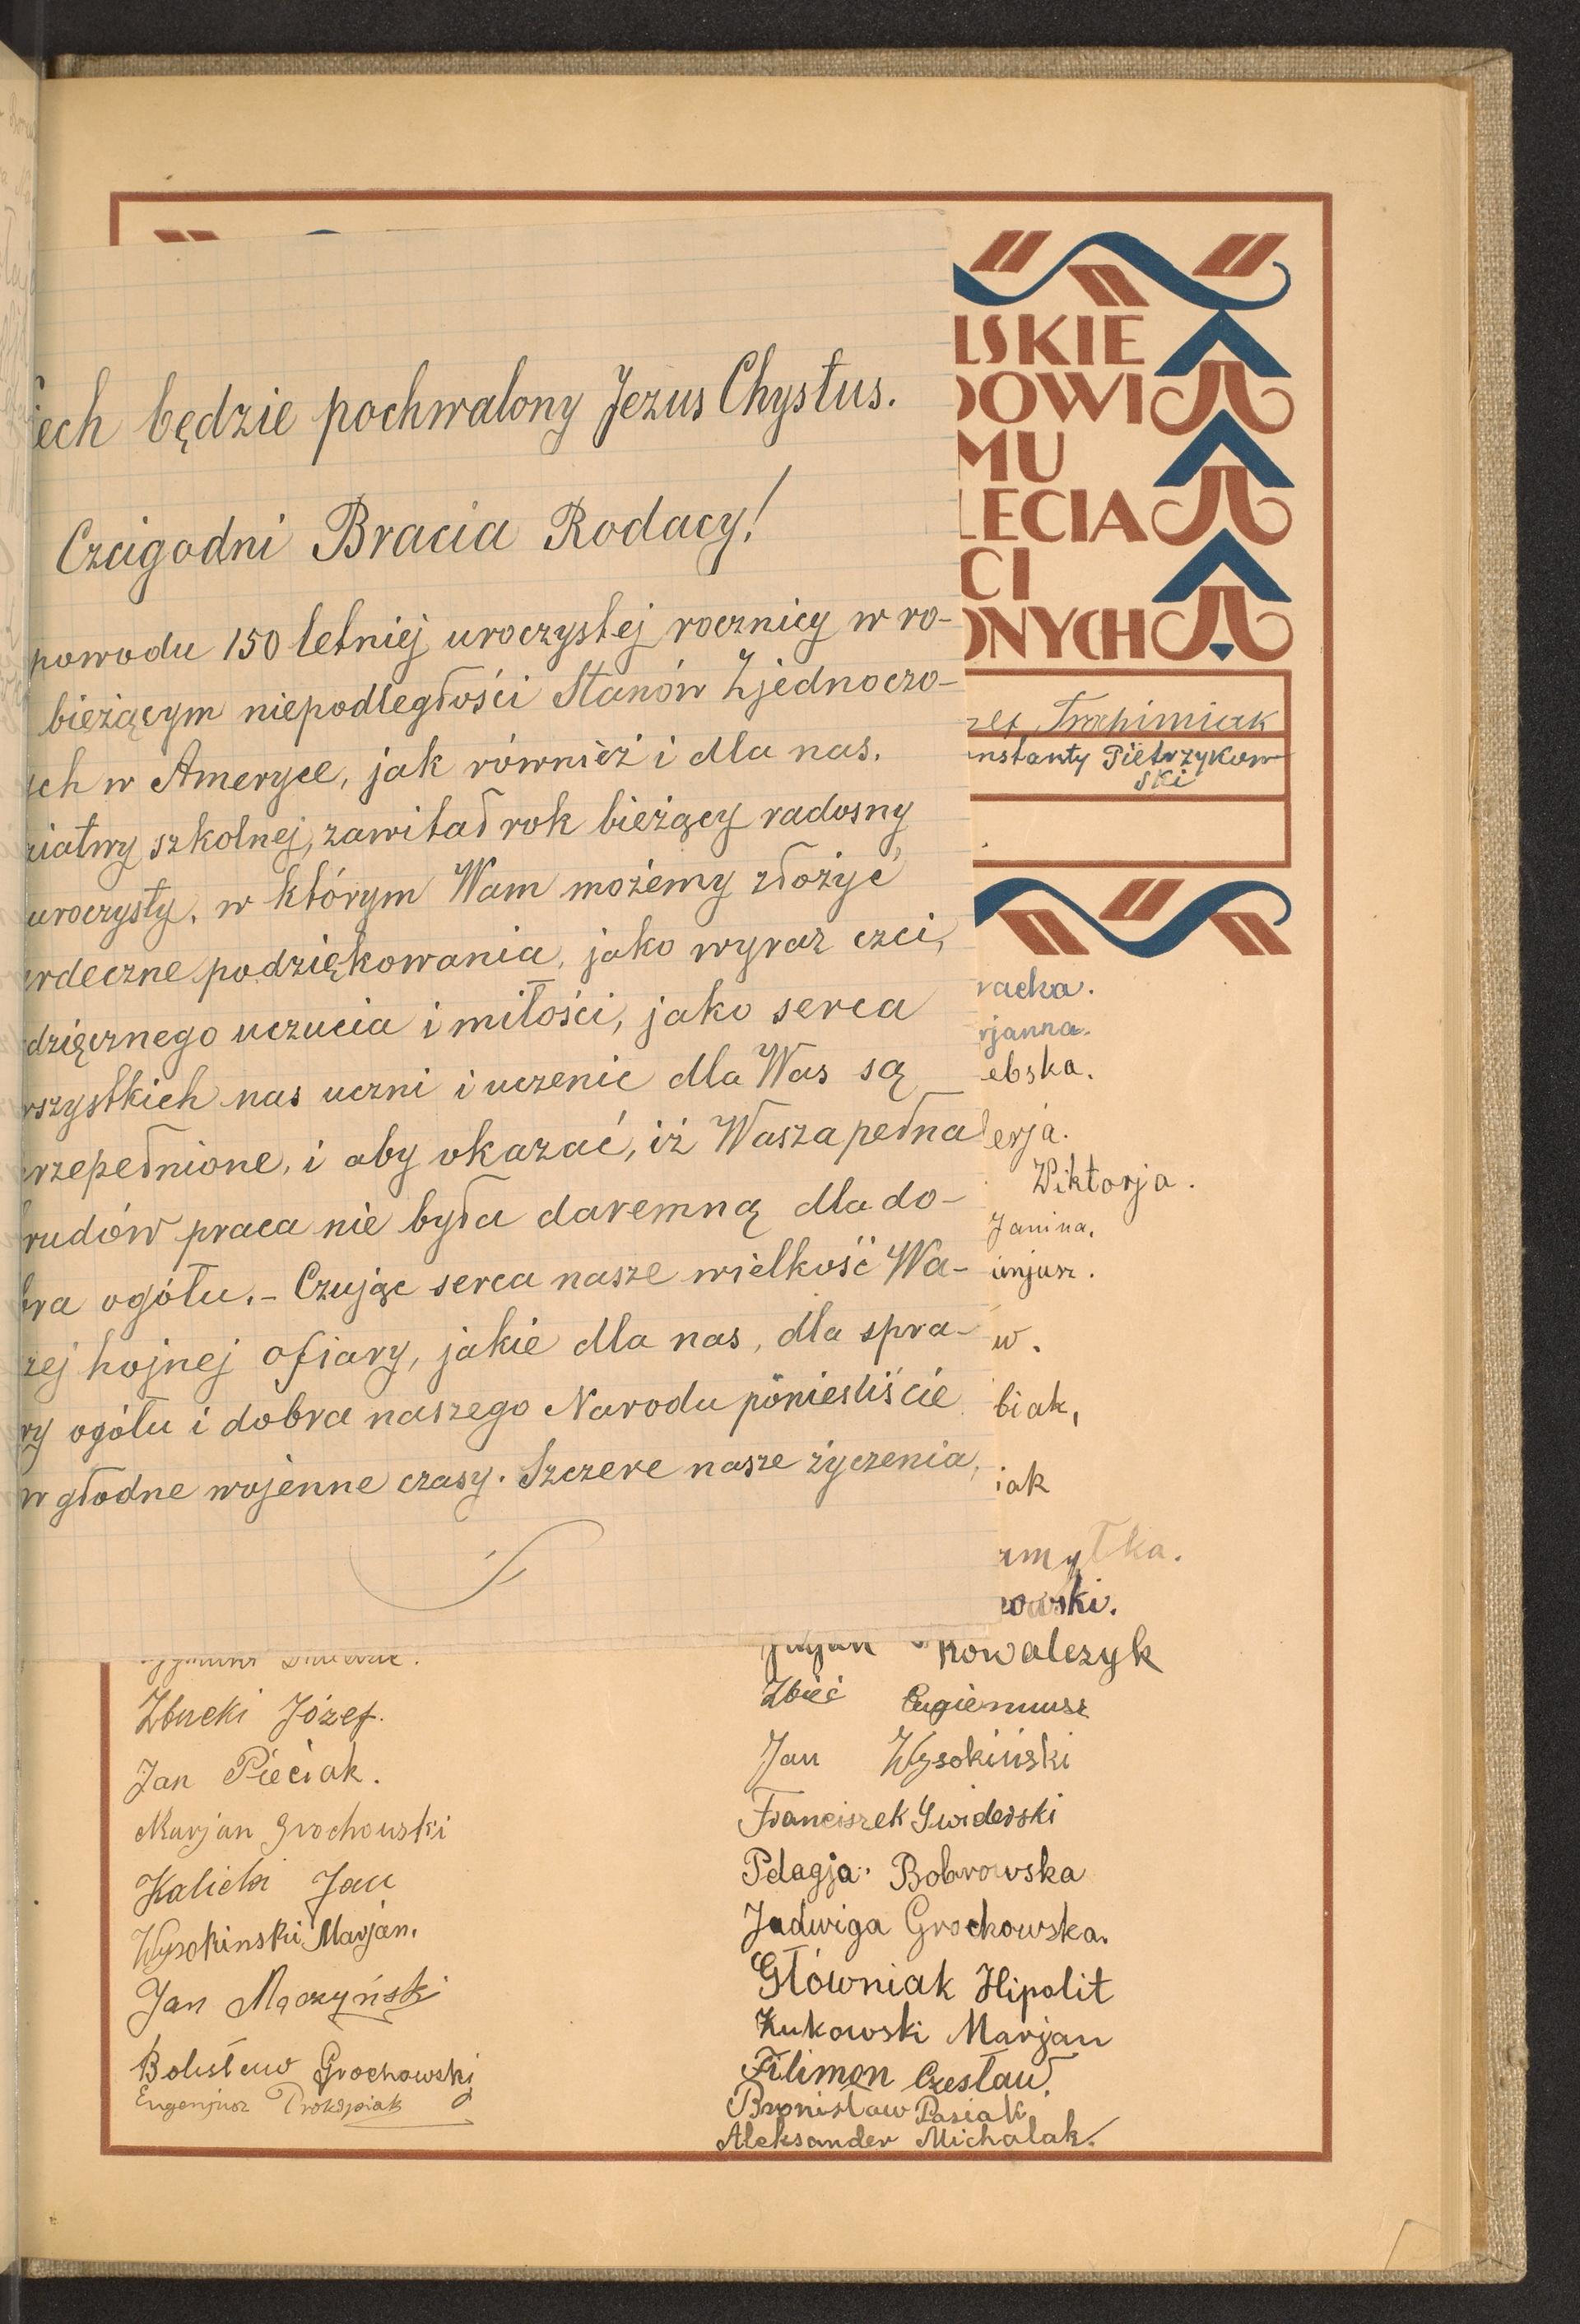 ech będzie pochwalony Jezus Chystus.
Czcigodni Bracia Rodacy!
powodu 150 letniej uroczystej rocznicy w ro-
bieżącym niepodległości Stanów Zjednoczo-
ch w Ameryce, jak również i dla nas.
ziatwy szkolnej, zawitał rok bieżący radosny
uroczysty, w którym Wam możemy złożyć
erdeczne podziękowania, jako wyraz czci,
dzięcznego uczucia i miłości, jako serca
wszystkich nas uczni i uczenic dla Was są
przepełnione, i aby okazać, iż Wasza pełna
rudów praca nie była daremną dla do-
bra ogółu. – Czując serca nasze wielkość Wa-
zej hojnej ofiary, jakie dla nas, dla spra-
wy ogółu i dobra naszego Narodu ponieśliście
w głodne wojenne czasy. Szczere nasze życzenia,
LSKIE
OWI
MU
LECIA
CI
ONYCH
zef Trochimiak
onstanty Pietrzykow-
ski
racka.
rjanna.
ebska.
erja.
Wiktorja.
Janina.
unjusz.
w.
biak,
iak
zmytka.
owski.
Zbucki Józef.
Jan Pieciak.
Marjan Grochowski
Kalicki Jan
Wysokinski Marjan.
Jan Mączyński
Bolesław Grochowski
Eugenjusz Prokopiak
Kowalczyk
Zbieć Eugieniusz
Jan Wysokiński
Franciszek Swiderski
Pelagja Bobrowska
Jadwiga Grochowska.
Główniak Hipolit
Żukowski Marjan
Filimon Czesław.
Bronisław Pasiak
Aleksander Michalak.